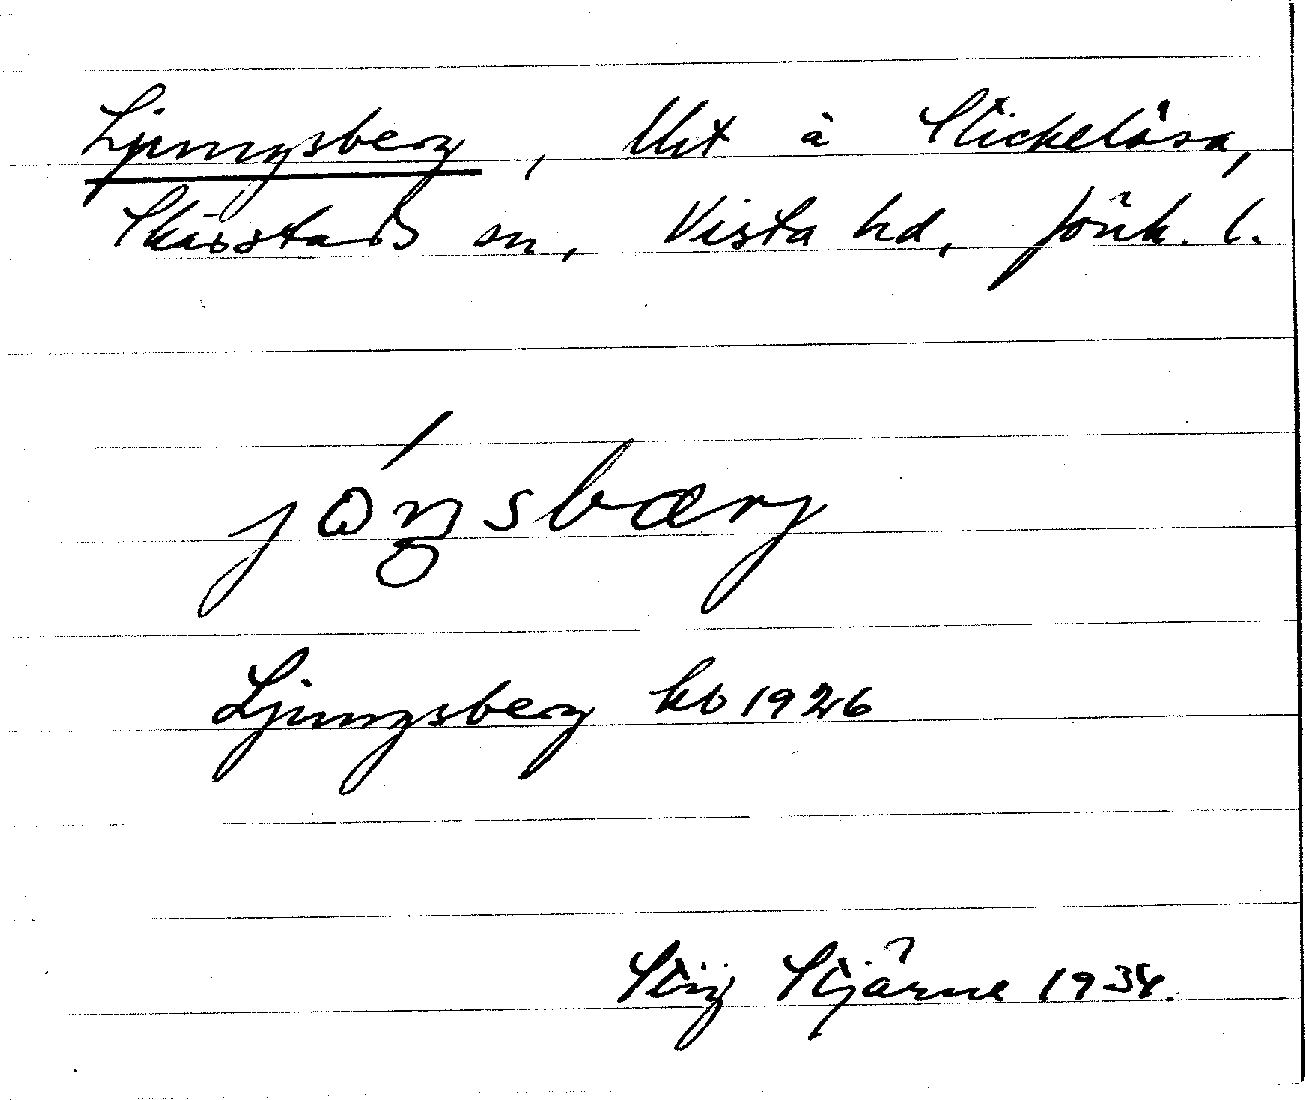 Ljungsberg, Uht å Stickelösa,
Skärstads sn, Vista hd, Jönk. l.
jòŋsbærj
Ljungsberg kb 1926
Stig Stjärne 1934.